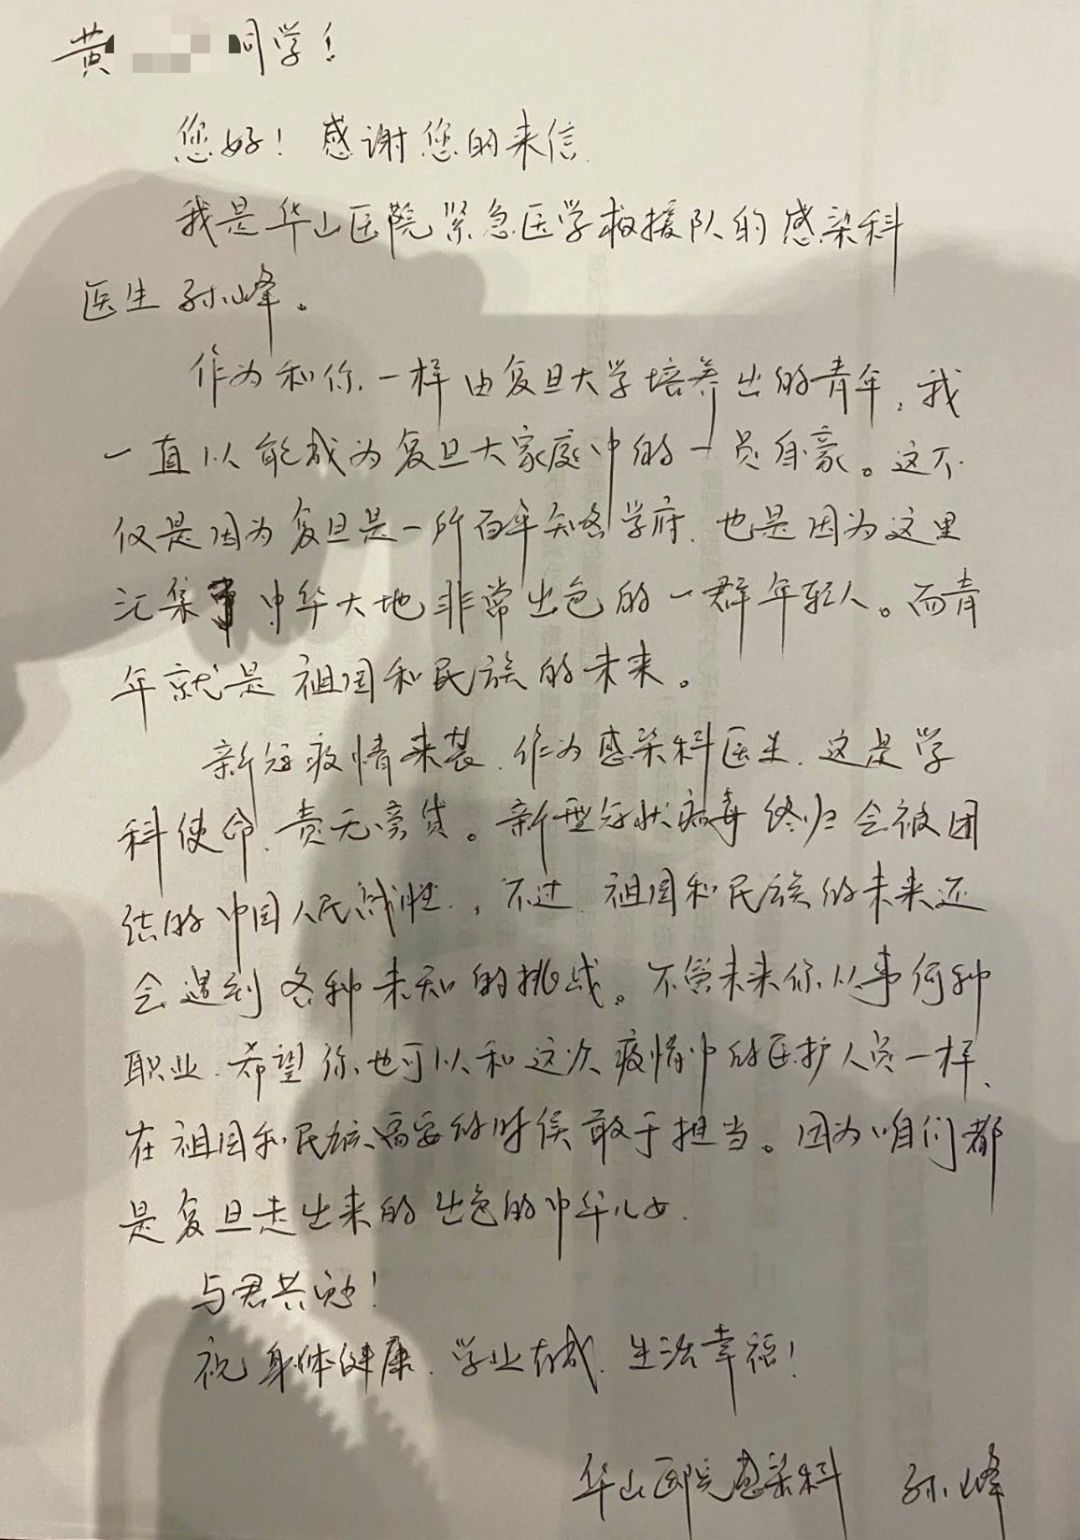 黄 同学！
您好！感谢您的来信.
我是华山医院紧急医学救援队的感染科
医生孙峰。
作为和你一样由复旦大学培养出的青年，我
一直以能成为复旦大家庭中的一员自豪。这不
仅是因为复旦是一所百年知名学府，也是因为这里
汇集了中华大地非常出色的一群年轻人。而青
年就是祖国和民族的未来。
新冠疫情来袭，作为感染科医生，这是学
科使命，责无旁贷。新型冠状病毒终归会被团
结的中国人民战胜，不过，祖国和民族的未来还
会遇到各种未知的挑战。不管未来你从事何种
职业，希望你也可以和这次疫情中的医护人员一样，
在祖国和民族需要的时候敢于担当。因为咱们都
是复旦走出来的出色的中华儿女.
与君共勉！
祝身体健康，学业有成，生活幸福！
华山医院感染科 孙峰